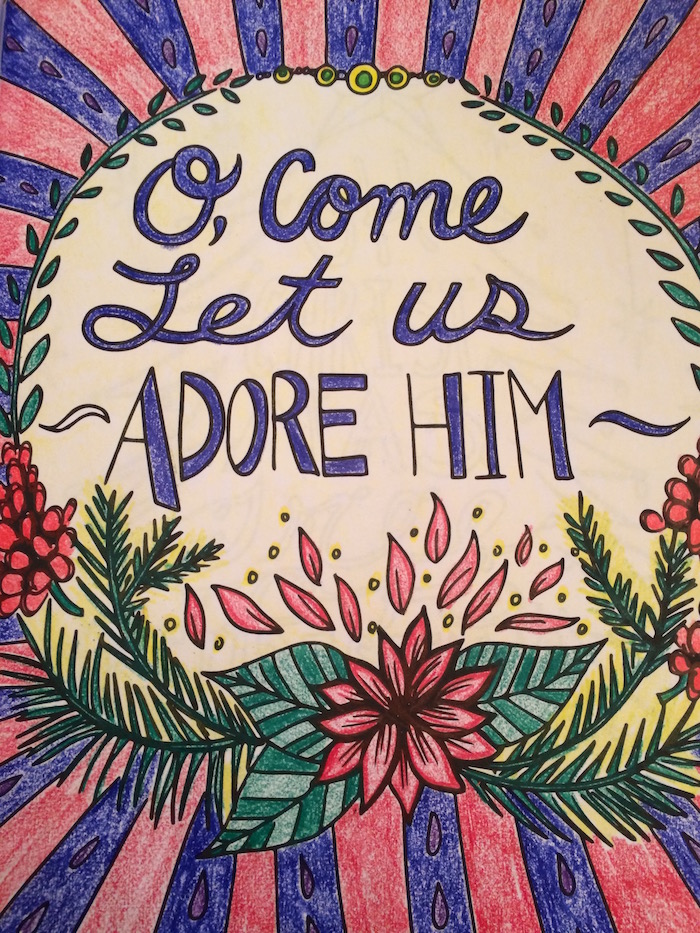 O, Come
Let us
ADORE HIM